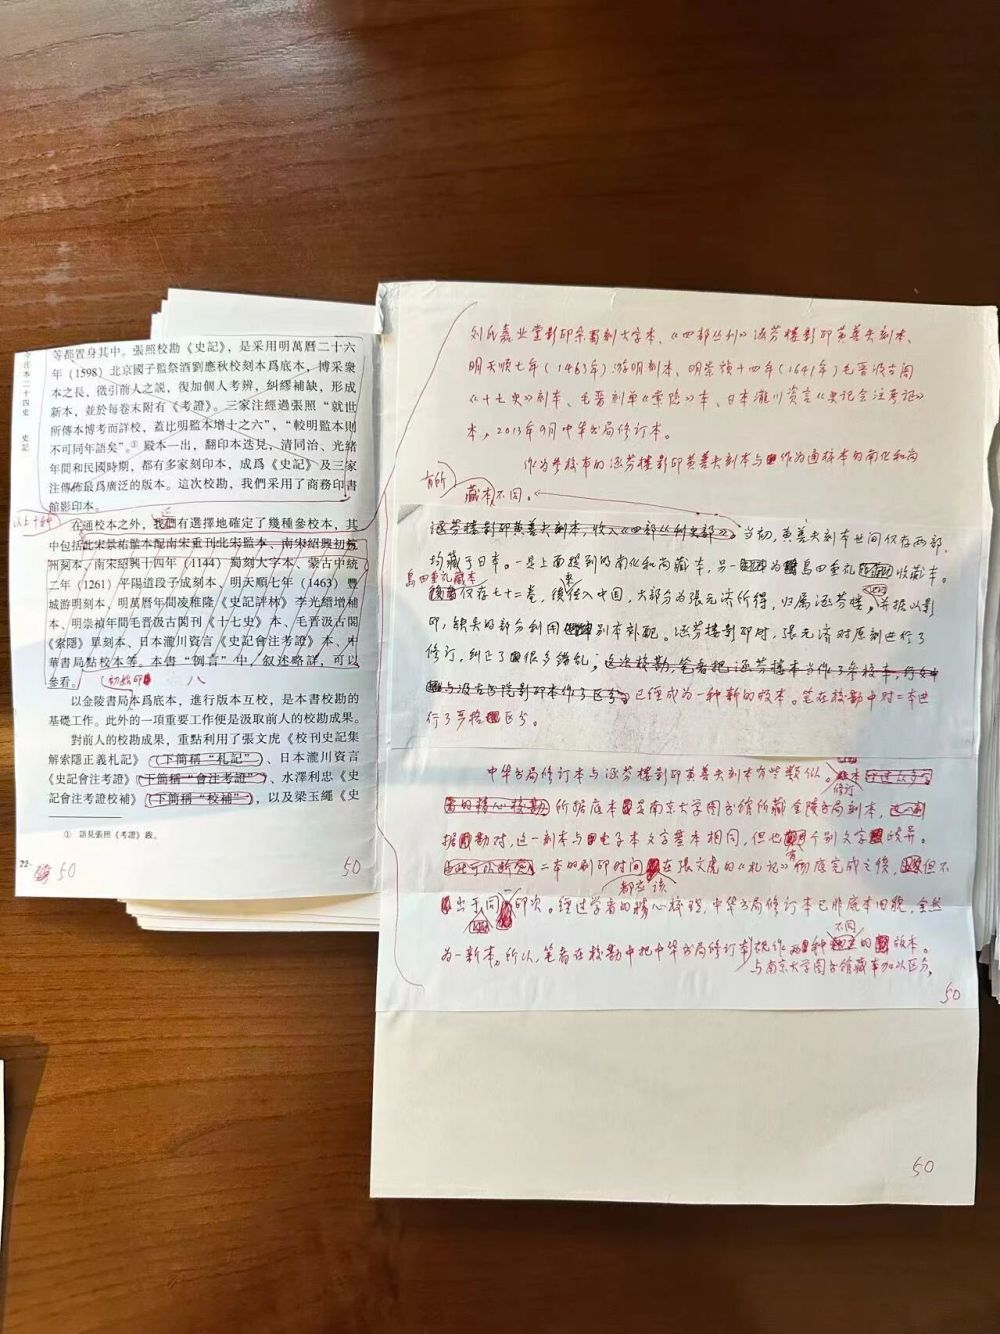 今注本二十四史 史記
等都置身其中。張照校勘《史記》，是采用明萬曆二十六
年（1598）北京國子監祭酒劉應秋校刻本爲底本，博采衆
本之長，徵引前人之説，復加個人考辨，糾繆補缺，形成
新本，並於每卷末附有《考證》。三家注經過張照“就世
所傳本博考而詳校，蓋比明監本增十之六”，“較明監本則
不可同年語矣”。① 殿本一出，翻印本迭見，清同治、光緒
年間和民國時期，都有多家刻印本，成爲《史記》及三家
注傳佈最爲廣泛的版本。這次校勘，我們采用了商務印書
館影印本。
以上十種
在通校本之外，我們有選擇地確定了幾種參校本，其
中包括北宋景祐監本配南宋重刊北宋監本、南宋紹興初杭
州刻本、南宋紹興十四年（1144）蜀刻大字本、蒙古中統
二年（1261）平陽道段子成刻本、明天順七年（1463）豐
城游明刻本、明萬曆年間凌稚隆《史記評林》李光縉增補
本、明崇禎年間毛晋汲古閣刊《十七史》本、毛晋汲古閣
《索隱》單刻本、日本瀧川資言《史記會注考證》本、中
華書局點校本等。本書“例言”中，叙述略詳，可以
參看。
初始印
八
以金陵書局本爲底本，進行版本互校，是本書校勘的
基礎工作。此外的一項重要工作便是汲取前人的校勘成果。
對前人的校勘成果，重點利用了張文虎《校刊史記集
解索隱正義札記》（下簡稱“札記”）、日本瀧川資言
《史記會注考證》（下簡稱“會注考證”）、水澤利忠《史
記會注考證校補》（下簡稱“校補”），以及梁玉繩《史
① 語見張照《考證》跋。
22
50
50
刘氏嘉业堂影印宋蜀刻大字本、《四部丛刊》涵芬楼影印黄善夫刻本、
明天顺七年（1463年）游明刻本、明崇祯十四年（1641年）毛晋汲古阁
《十七史》刻本、毛晋刻单《索隐》本、日本瀧川资言《史记会注考证》
本，2013年9月中华书局修订本。
作为参校本的涵芬楼影印黄善夫刻本与作为通校本的南化和尚
有所
藏本不同。
涵芬楼影印黄善夫刻本，收入《四部丛刊史部》。当初，黄善夫刻本世间仅存两部，
均藏于日本。一是上面提到的南化和尚藏本，另一为島田重礼收藏本。
島田重礼藏本
仅存七十二卷，後经入中国，大部分为张元济所得，归属涵芬楼，并据以影
印，缺失的部分利用刻本补配。涵芬楼影印时，张元济对原刻进行了
修订，纠正了很多错乱，这次校勘，笔者把涵芬楼本当作了参校本，
与汲古书院影印本作了区分。已经成为一种新的版本。笔者在校勘中对二本进
行了严格区分。
中华书局修订本与涵芬楼影印黄善夫刻本有些类似。
修订
的精心校勘 所据底本 南京大学图书馆所藏金陵书局刻本，
据 勘对，这一刻本与电子本文字基本相同，但也有个别文字歧异。
二本的刷印时间 在张文虎的《札记》初底完成之後，但不
都应该
出于同 印次。经过学者的精心校理，中华书局修订本已非底本旧貌，全然
不同
为一新本。所以，笔者在校勘中把中华书局修订本视作 种 的 版本。
与南京大学图书馆藏本加以区分。
50
50